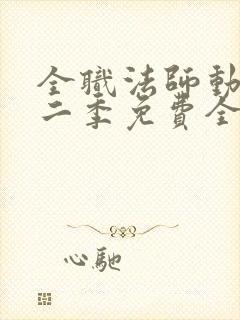 全職法師動
二季免費全
心馳